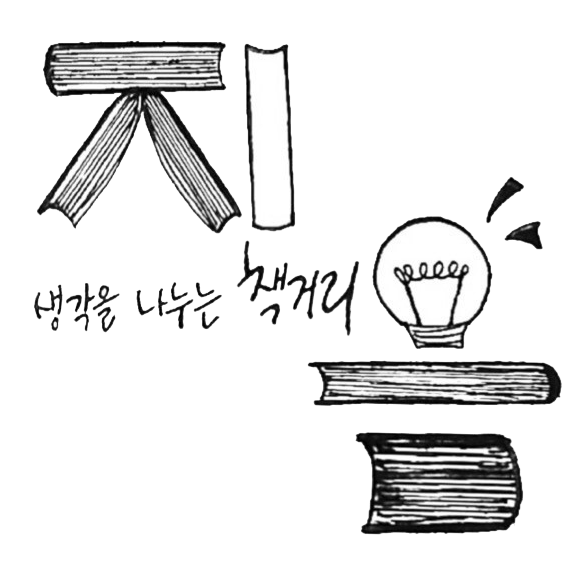 지
생각을 나누는 책거리
음